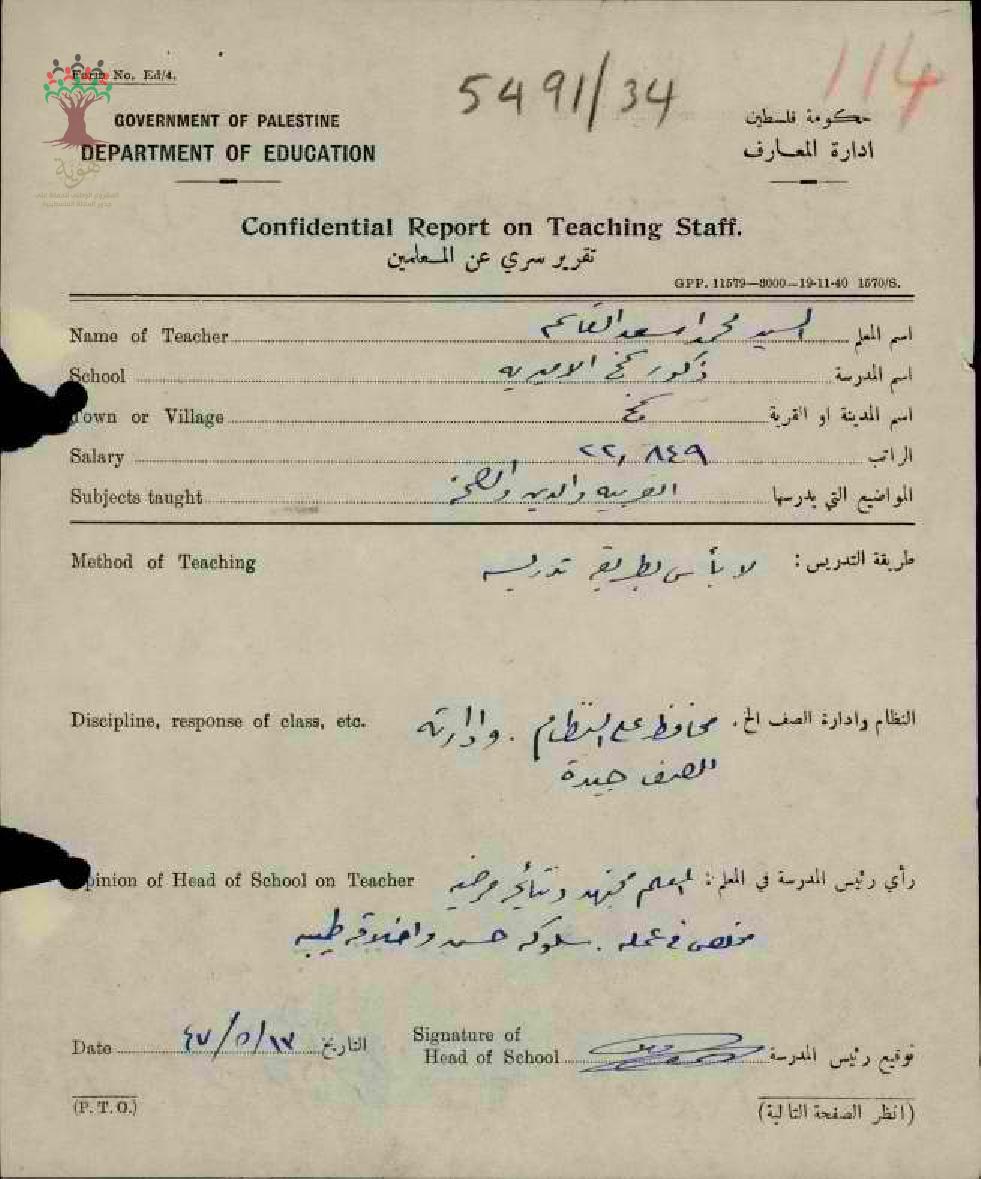 Form No. Ed/4.
5491/34
114
GOVERNMENT OF PALESTINE
DEPARTMENT OF EDUCATION
حكومة فلسطين
ادارة المعارف
هوية
Confidential Report on Teaching Staff.
تقرير سري عن المعلمين
GPP. 11579—3000—19-11-40 1570/S.
Name of Teacher السيد محمد اسعد القاسم اسم المعلم
School ذكور الاميريه اسم المدرسة
Town or Village اسم المدينة او القرية
Salary ٢٢,٨٤٩ الراتب
Subjects taught العربيه والدين والصحة المواضيع التي يدرسها
Method of Teaching لا بأس بطريقة تدريسه طريقة التدريس :
Discipline, response of class, etc. محافظ على النظام . وادارته النظام وادارة الصف الخ.
للصف جيدة
Opinion of Head of School on Teacher المعلم مجتهد ونتائجه مرضيه رأي رئيس المدرسة في المعلم :
مخلص في عمله . سلوكه حسن واخلاقه طيبه
Date ١٣/٥/٤٧ التاريخ Signature of Head of School توقيع رئيس المدرسة
(P. T. O.) (انظر الصفحة التالية)